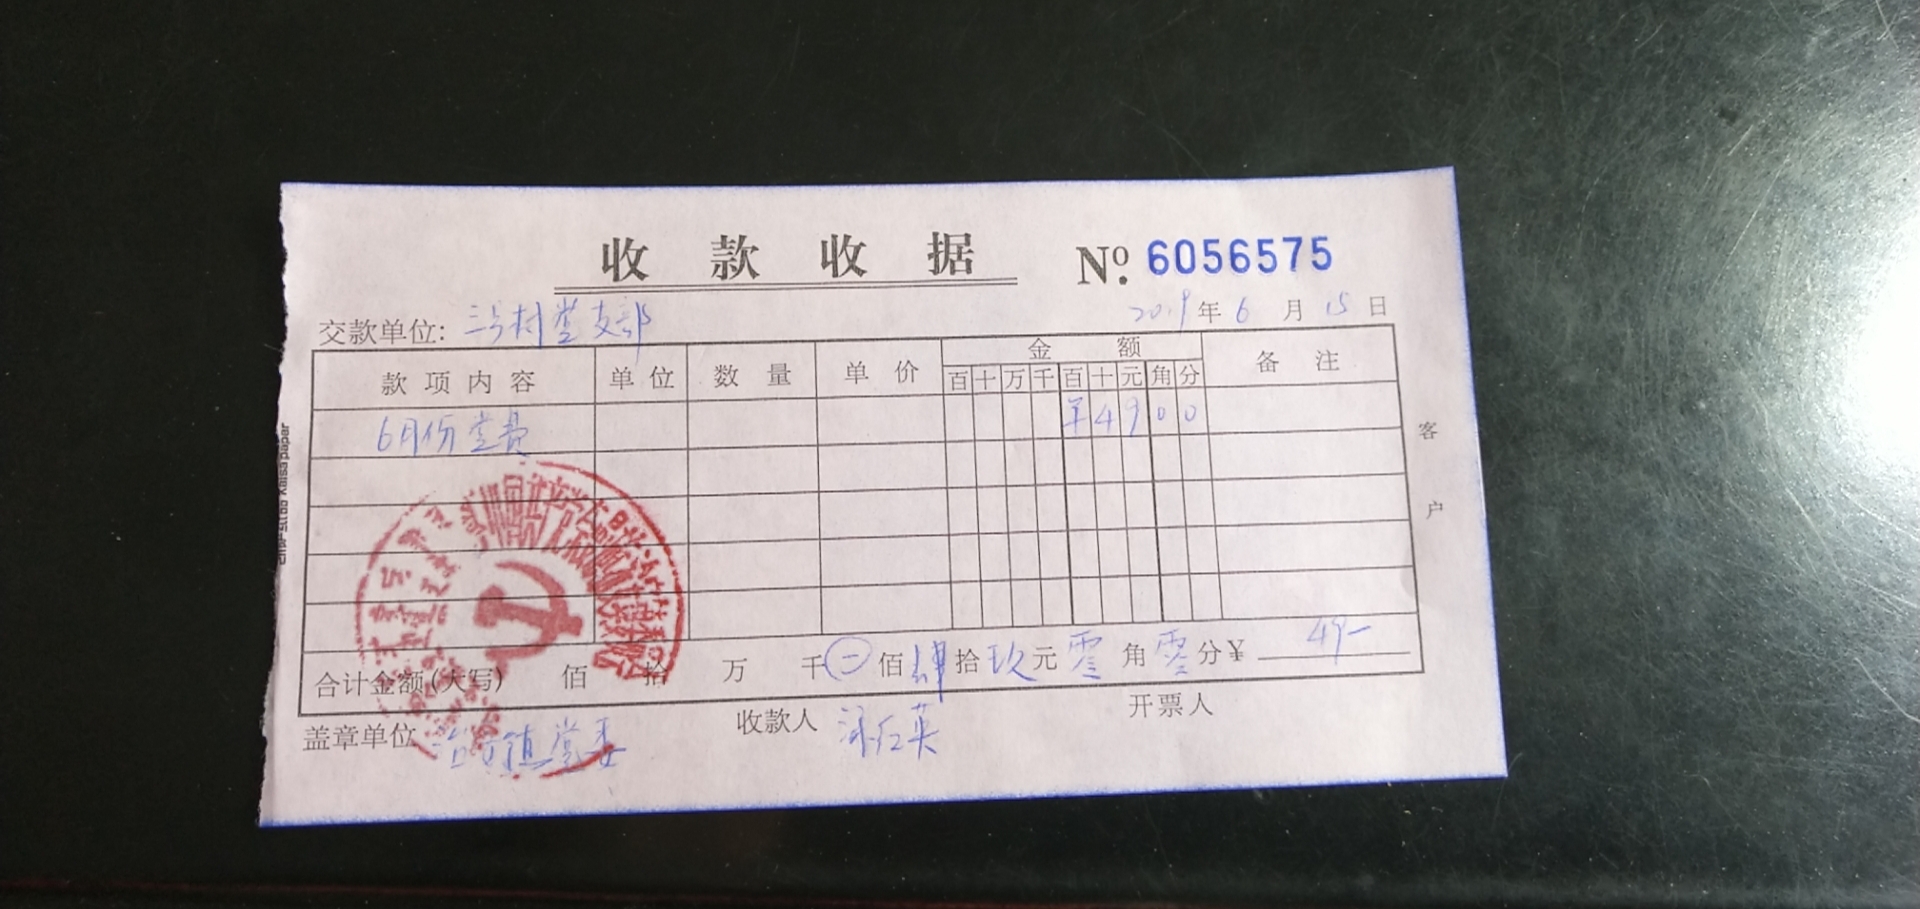 收款收据 Nº. 6056575
交款单位: 三号村党支部 2019年6月15日
款项内容 单位 数量 单价 金额 备注
百十万千百十元角分
6月份党费 ¥4900
客户
合计金额(大写) 佰 拾 万 千 ⊖ 佰 肆 拾 玖 元 零 角 零 分 ¥ 49-
盖章单位 镇党委 收款人 红英 开票人